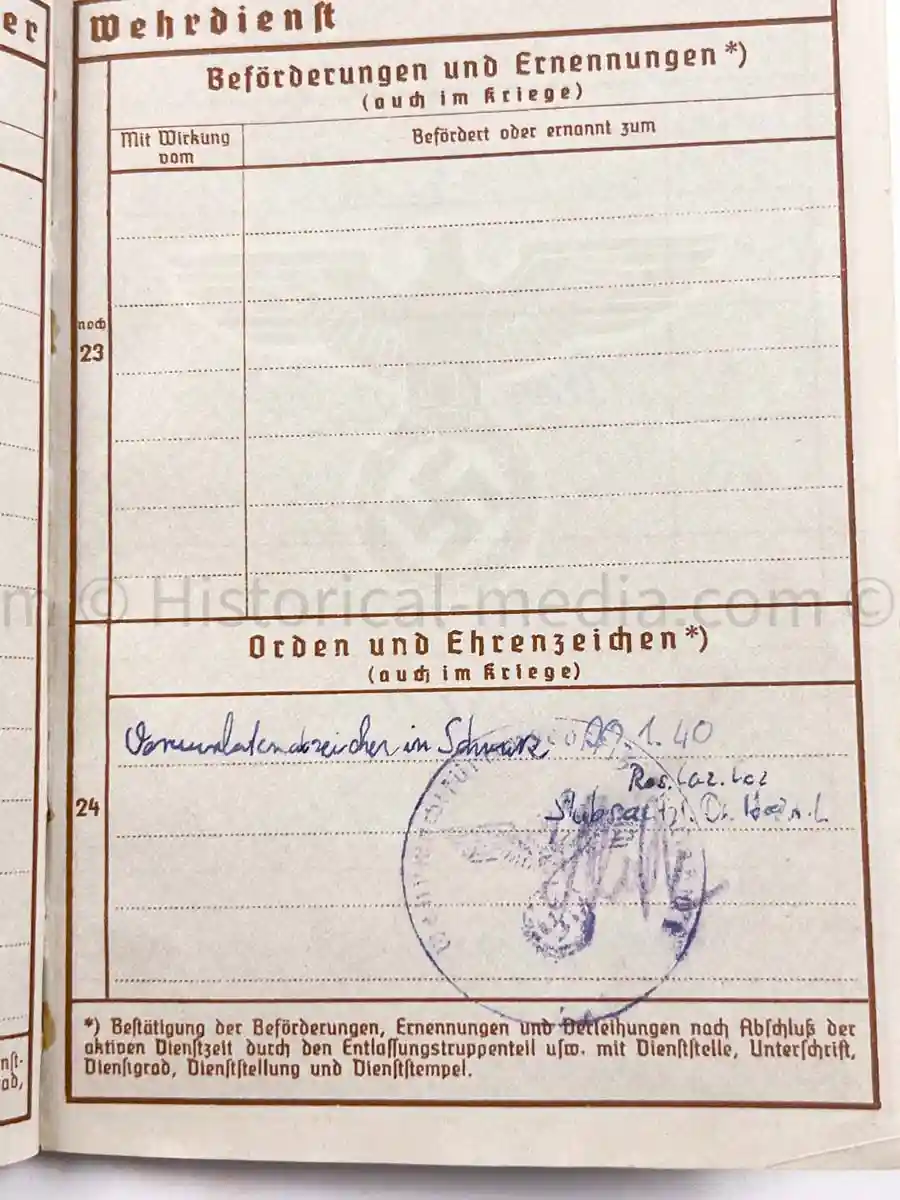 er
Wehrdienst
Beförderungen und Ernennungen *)
(auch im Kriege)
Mit Wirkung
vom
Befördert oder ernannt zum
noch
23
m © Historical-media.com ©
Orden und Ehrenzeichen *)
(auch im Kriege)
in Schwarz 1.40
Res. Laz.
24
Dr.
*) Bestätigung der Beförderungen, Ernennungen und Verleihungen nach Abschluß der
aktiven Dienstzeit durch den Entlassungstruppenteil usw. mit Dienststelle, Unterschrift,
Dienstgrad, Dienststellung und Dienststempel.
nst-
ad,